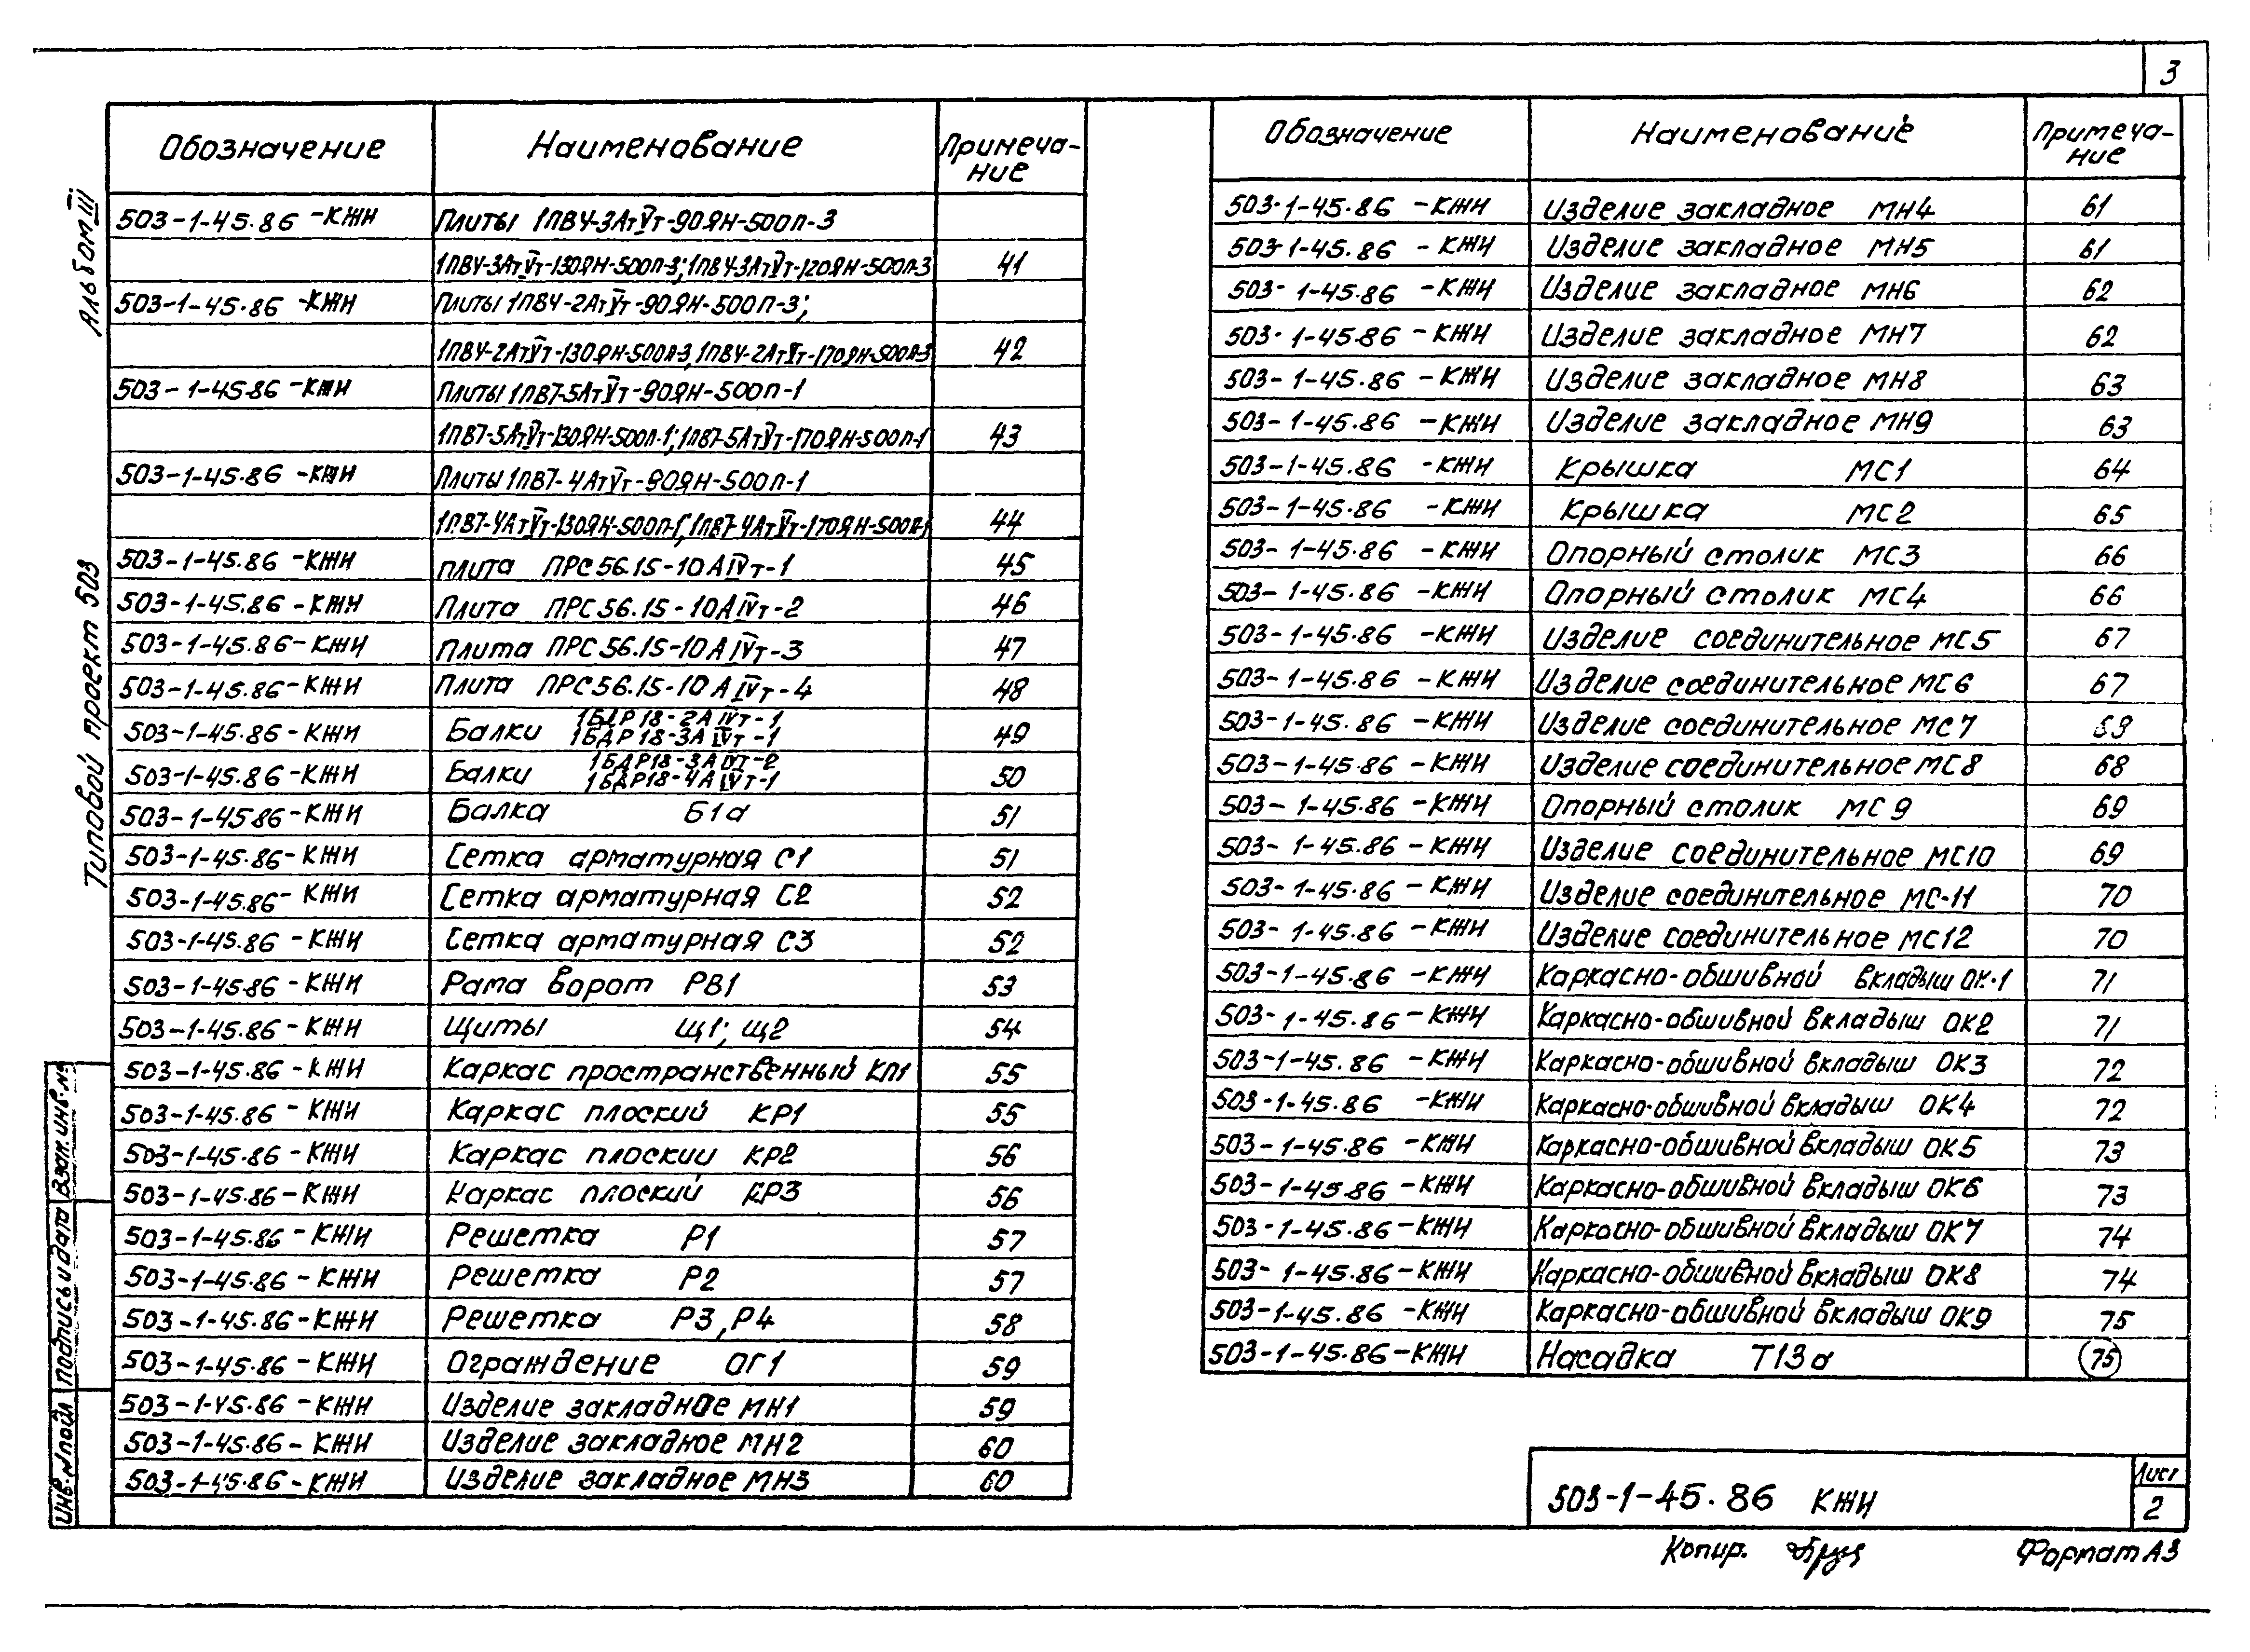 3
Альбом III
Типовой проект 503
Обозначение Наименование Примеча-
ние
503-1-45.86 -КЖИ Плиты 1ПВ4-3АтVт-90ЯН-500П-3
1ПВ4-3АтVт-130ЯН-500П-3; 1ПВ4-3АтVт-120ЯН-500П-3 41
503-1-45.86 -КЖИ Плиты 1ПВ4-2АтVт-90ЯН-500П-3;
1ПВ4-2АтVт-130ЯН-500П-3, 1ПВ4-2АтVт-170ЯН-500П-3 42
503-1-45.86 -КЖИ Плиты 1ПВ7-5АтVт-90ЯН-500П-1
1ПВ7-5АтVт-130ЯН-500П-1; 1ПВ7-5АтVт-170ЯН-500П-1 43
503-1-45.86 -КЖИ Плиты 1ПВ7-4АтVт-90ЯН-500П-1
1ПВ7-4АтVт-130ЯН-500П-1; 1ПВ7-4АтVт-170ЯН-500П-1 44
503-1-45.86 -КЖИ плита ПРС56.15-10АIVт-1 45
503-1-45.86 -КЖИ Плита ПРС56.15-10АIVт-2 46
503-1-45.86-КЖИ Плита ПРС56.15-10АIVт-3 47
503-1-45.86-КЖИ Плита ПРС56.15-10АIVт-4 48
503-1-45.86-КЖИ Балки 1БДР18-2АIVт-1
1БДР18-3АIVт-1 49
503-1-45.86-КЖИ Балки 1БДР18-3АIVт-2
1БДР18-4АIVт-1 50
503-1-45.86-КЖИ Балка Б1а 51
503-1-45.86-КЖИ Сетка арматурная С1 51
503-1-45.86-КЖИ Сетка арматурная С2 52
503-1-45.86 -КЖИ Сетка арматурная С3 52
503-1-45.86 -КЖИ Рама ворот РВ1 53
503-1-45.86 -КЖИ Щиты Щ1; Щ2 54
503-1-45.86 -КЖИ Каркас пространственный КП1 55
503-1-45.86 -КЖИ Каркас плоский КР1 55
503-1-45.86 -КЖИ Каркас плоский КР2 56
503-1-45.86-КЖИ Каркас плоский КР3 56
503-1-45.86 -КЖИ Решетка Р1 57
503-1-45.86 -КЖИ Решетка Р2 57
503-1-45.86-КЖИ Решетка Р3,Р4 58
503-1-45.86 -КЖИ Ограждение ОГ1 59
503-1-45.86 -КЖИ Изделие закладное МН1 59
503-1-45.86 - КЖИ Изделие закладное МН2 60
503-1-45.86 - КЖИ Изделие закладное МН3 60
Обозначение Наименование Примеча-
ние
503-1-45.86 -КЖИ Изделие закладное МН4 61
503-1-45.86 -КЖИ Изделие закладное МН5 61
503-1-45.86 -КЖИ Изделие закладное МН6 62
503-1-45.86 -КЖИ Изделие закладное МН7 62
503-1-45.86 -КЖИ Изделие закладное МН8 63
503-1-45.86 -КЖИ Изделие закладное МН9 63
503-1-45.86 -КЖИ Крышка МС1 64
503-1-45.86 -КЖИ Крышка МС2 65
503-1-45.86 -КЖИ Опорный столик МС3 66
503-1-45.86 -КЖИ Опорный столик МС4 66
503-1-45.86 -КЖИ Изделие соединительное МС5 67
503-1-45.86 -КЖИ Изделие соединительное МС6 67
503-1-45.86 -КЖИ Изделие соединительное МС7
503-1-45.86 -КЖИ Изделие соединительное МС8 68
503-1-45.86 -КЖИ Опорный столик МС9 69
503-1-45.86 -КЖИ Изделие соединительное МС10 69
503-1-45.86 -КЖИ Изделие соединительное МС-11 70
503-1-45.86 -КЖИ Изделие соединительное МС12 70
503-1-45.86 -КЖИ Каркасно-обшивной вкладыш ОК-1 71
503-1-45.86 -КЖИ Каркасно-обшивной вкладыш ОК2 71
503-1-45.86 -КЖИ Каркасно-обшивной вкладыш ОК3 72
503-1-45.86 -КЖИ Каркасно-обшивной вкладыш ОК4 72
503-1-45.86 -КЖИ Каркасно-обшивной вкладыш ОК5 73
503-1-45.86 -КЖИ Каркасно-обшивной вкладыш ОК6 73
503-1-45.86 -КЖИ Каркасно-обшивной вкладыш ОК7 74
503-1-45.86-КЖИ Каркасно-обшивной вкладыш ОК8 74
503-1-45.86 -КЖИ Каркасно-обшивной вкладыш ОК9 75
503-1-45.86-КЖИ Насадка Т13а 75
Взам.инв.№
Подпись и дата
Инв.№подл
503-1-45.86 КЖИ
Лист
2
Копир.
Формат А3